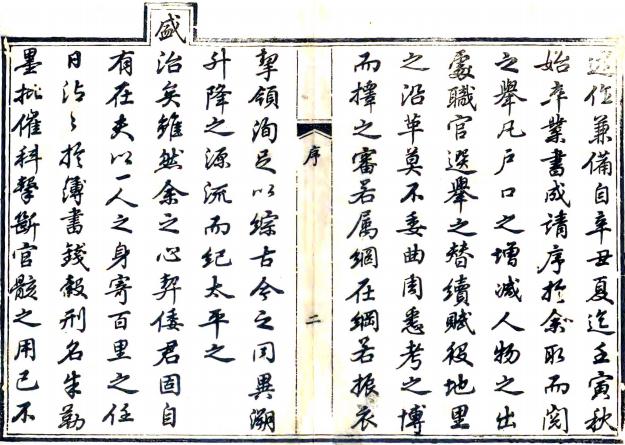 任兼備自辛丑夏迄壬寅秋
始卒業書成請序於余取而閱
之舉凡戶口之增減人物之出
處職官選舉之替續賦役地里
之沿革莫不委曲周悉考之博
而擇之審若屬綱在綱若振衣
序 二
挈領洵足以綜古今之同異溯
升降之源流而紀太平之
盛治矣雖然余之心契倭君固自
有在夫以一人之身寄百里之任
日沾〻於簿書錢穀刑名朱勒
墨批催科擊斷官骸之用已不